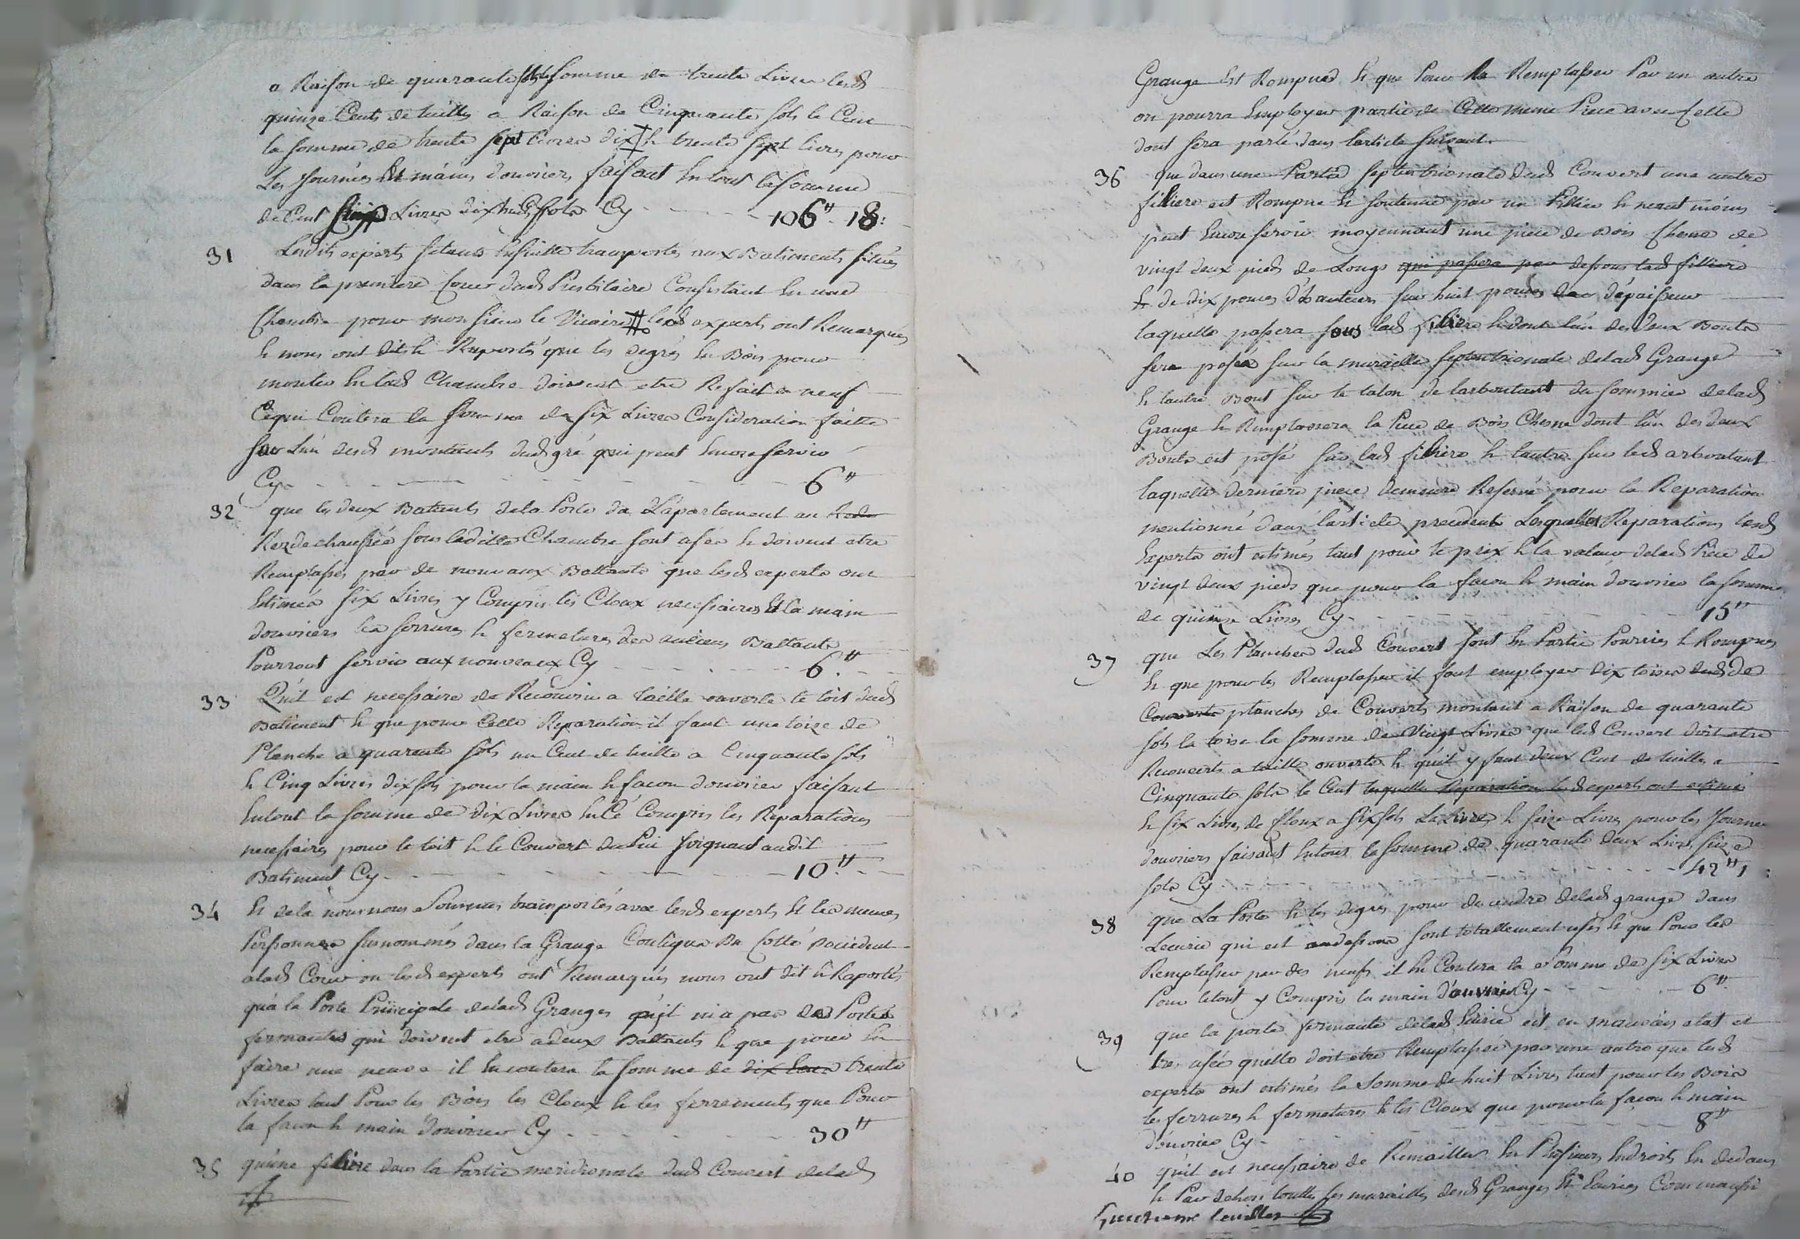 a Raison de quarante sols somme de trente Livres lesd
quinze Cents de tuilles a Raison de Cinquante sols le Cent
la somme de trente sept Livres dix h trente sept livres pour
Les Journées Et mains douvriers faisant En tout la somme
de Cent Livres dix huit sols Cy 106" 18:
31 Lesdits experts Etants Ensuitte transportés aux Batiments situés
dans la premiere Cour dud Presbitaire Consistant En une
Chambre pour monsieur le Vicaire lesd experts ont Remarqués
h nous ont dit h Raportés que les degrés En Bois pour
monter En lad Chambre doivent etre Refait a neuf
Ce qui Coutera la somme de six Livres Consideration faitte
sur L'un desd montants dud gré qui peut Encore servir
Cy 6"
32 que les deux Batants de la Porte de L'apartement au
Rez de chaussée sous laditte Chambre sont usés h doivent etre
Remplassés par de nouveaux Battants que lesd experts ont
Estimés six Livres y Compris les Cloux necessaires Et la main
douvriers les serrures h fermetures des anciens Battants
Pourront servir aux nouveaux Cy 6"
33 Qu'il est necessaire de Recouvrir a taille ouverte le toit dud
Batiment h que pour Cette Reparation il faut une toize de
Planche a quarante sols un Cent de tuille a Cinquante sols
h Cinq Livres dix sols pour la main h facon douvrier faisant
Entout la somme de Dix Livres En Ce Compris les Reparations
necessaires pour le toit h le Couvert du Joignant audit
Batiment Cy 10"
34 h de la nous nous sommes transportés avec lesd experts Et les memes
Personnes susnommés dans la Grange Contigue Du Cotté Doccident
alad Cour ou lesd experts ont Remarqués nous ont dit h Raportés
qu'a la Porte Principale delad Granges qu'il ni a pas de Portes
fermantes qui doivent etre a deux Battants h que pour En
faire une neuve il En coutera la somme de dix trente
Livres tant Pour les Bois les Cloux h les ferrements que Pour
la facon h main d'ouvrier Cy 30"
35 qu'une filiere dans la Partie meridionale dud Couvert delad
Grange Est Rompue h que Pour la Remplasser Par un autre
on pourra Employer partie de Cette meme Piece avec Celle
dont sera parlé dans l'article suivant.
36 que dans une Partie septentrionale dud Couvert une autre
filliere est Rompue h soutenue par un Pillier h neant moins
peut Encore servir moyennant une piece de Bois Chene de
vingt deux pieds de Longs qui passera par dessous lad filliere
h de dix pouces d'hauteurs sur huit pouces d'épaisseur
laquelle passera sous lad filiere h dont l'un des deux Bouts
sera posée sur la muraille septentrionale delad Grange
h lautre Bout sur le talon de larboutant du sommier delad
Grange h Remplassera la Piece de Bois Chesne dont l'un des deux
Bouts est posé sur lad filiere h lautre sur led arboutant
laquelle derniere piece demeure Reservé pour la Reparation
mentionné dans larticle precedent Lesquelles Reparations lesd
Experts ont estimés tant pour le prix h la valeur delad Piece de
vingt deux pieds que pour la façon h main douvrier la somme
de quinze Livres Cy 15"
37 que Les Planches dud Couvert sont En Partie Pourries h Rompues
h que pour les Remplasser il faut employer dix toises de
Couverts planches de Couverts montant a Raison de quarante
sols la toise la somme de Vingt Livres que led Couvert doit etre
Recouverts a taille ouverte h qu'il y faut deux Cent de tuilles a
Cinquante sols le Cent laquelle Reparation lesd experts ont estimé
h six Livres de Cloux a six sols La Livre h seize Livres pour les Journées
douvriers faisant Entout la somme de quarante deux Livres seize
sols Cy 42" 1
38 que La Porte h les degres pour descendre delad grange dans
Lecurie qui est au dessous sont totallement usés h que Pour les
Remplasser par des neufs il En Coutera la somme de six Livres
Pour letout y Compris la main d'ouvrier Cy 6"
39 que la porte fermante delad Ecurie est en mauvais etat et
tres usée quelle doit etre Remplassée par une autre que lesd
experts ont estimés la Somme de huit Livres tant pour les Bois
les ferrures h fermetures h les Cloux que pour la façon h main
douvrier Cy 8"
40 qu'il est necessaire de Remailler En Plusieurs Endroits En dedans
h Par dehors toutes les murailles desd Granges Et Ecuries Comme aussi